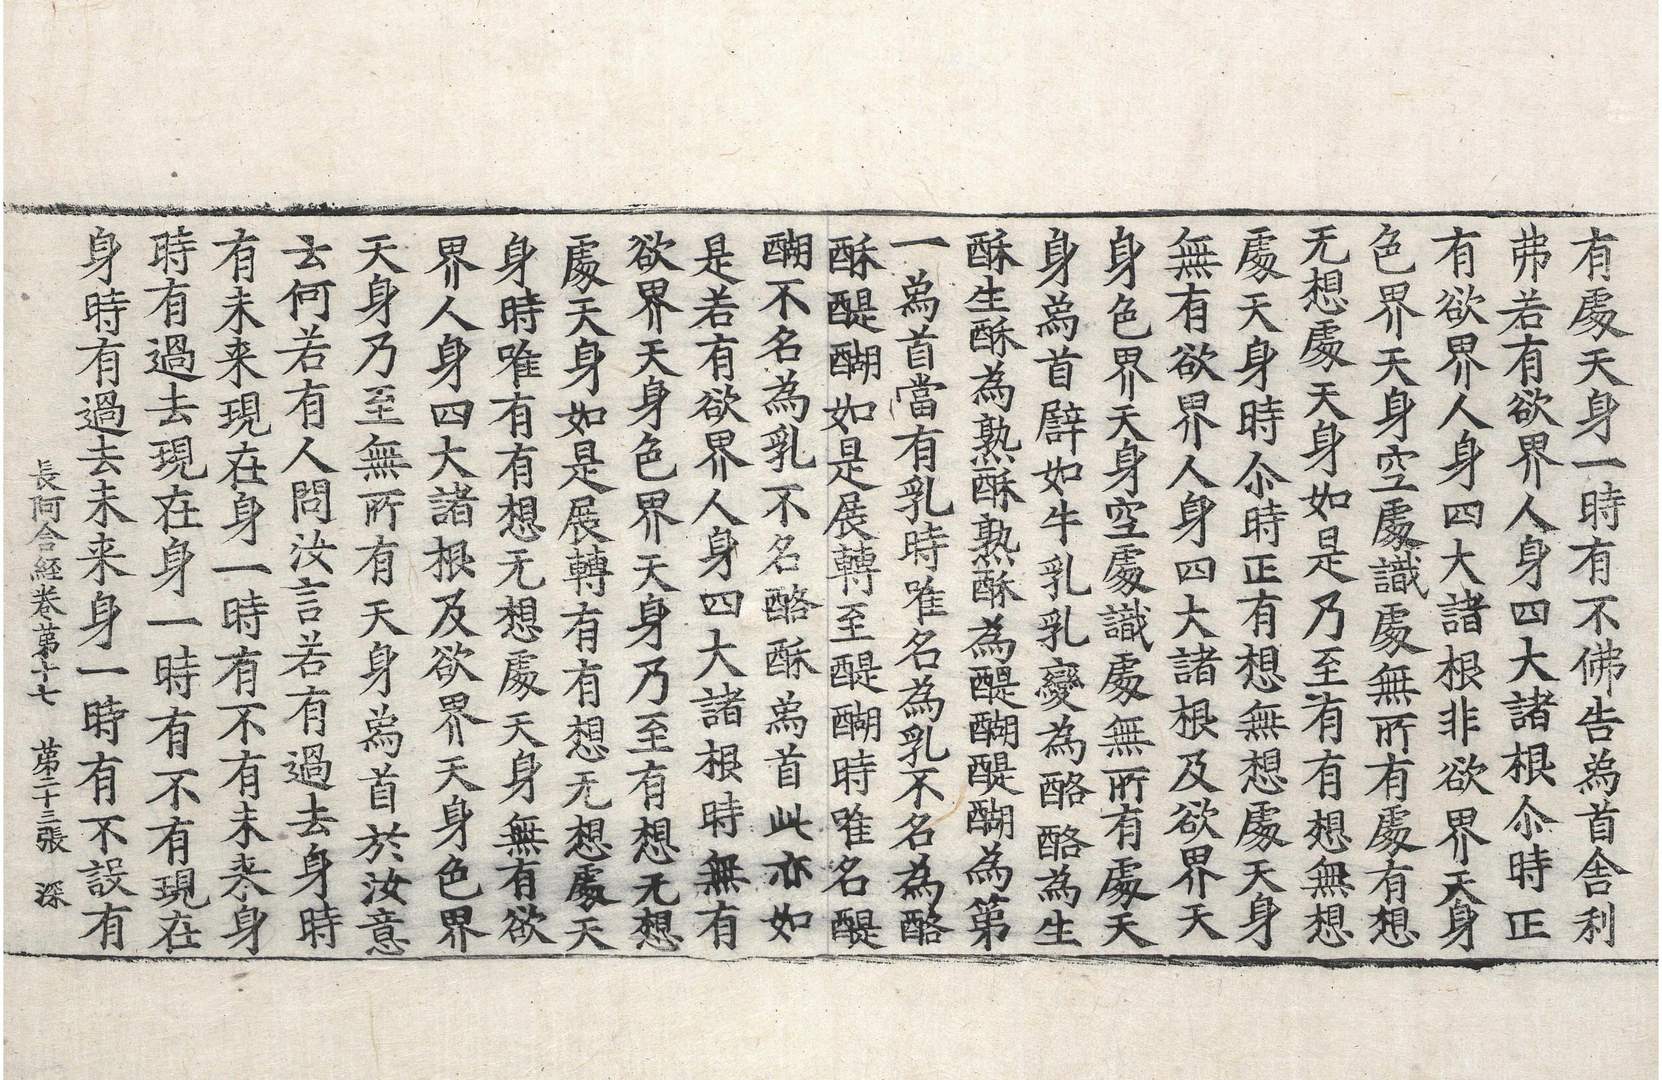 有處天身一時有不佛告為首舎利
弗若有欲界人身四大諸根尒時正
有欲界人身四大諸根非欲界天身
色界天身空處識處無所有處有想
无想處天身如是乃至有有想無想
處天身時尒時正有想無想處天身
無有欲界人身四大諸根及欲界天
身色界天身空處識處無所有處天
身為首譬如牛乳乳變為酪酪為生
酥生酥為熟酥熟酥為醍醐醍醐為第
一為首當有乳時唯名為乳不名為酪
酥醍醐如是展轉至醍醐時唯名醍
醐不名為乳不名酪酥為首此亦如
是若有欲界人身四大諸根時無有
欲界天身色界天身乃至有想无想
處天身如是展轉有有想无想處天
身時唯有有想无想處天身無有欲
界人身四大諸根及欲界天身色界
天身乃至無所有天身為首於汝意
云何若有人問汝言若有過去身時
有未来現在身一時有不有未来身
時有過去現在身一時有不有現在
身時有過去未来身一時有不設有
長阿含経卷第十七　第二十三張　深